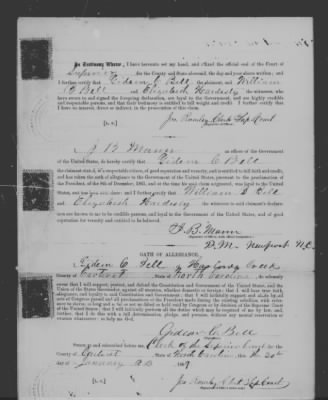 In Testimony Whereof, I have hereunto set my hand, and affixed the official seal of the Court of
Superior for the County and State aforesaid, the day and year above written; and I
further certify that Gideon C Bell the claimant, and William
Bell and Elizabeth Hardesty the witnesses, who
have sworn to and signed the foregoing declaration, are loyal to the Government, and are highly credible
and respectable persons, and that their testimony is entitled to full weight and credit. I further certify that I
have no interest, direct or indirect, in the prosecution of this claim.
[L.S.] Jas Rumley Clerk Sup Court
B Mann an officer of the Government
of the United States, do hereby certify that Gideon C Bell
the claimant
is of respectable origin and veracity, and is entitled to full faith and credit,
and has taken the oath of allegiance to the Government of the United States, pursuant to the proclamation
of the President of the 8th of December, 1863, and at the time his said claim originated, was loyal to the United
States, and further certify that William
Bell
and Elizabeth Hardesty the witnesses to said claimant's declara-
tion are known to me to be credible persons, and loyal to the Government of the United States, and of good
reputation for veracity and entitled to be believed.
B. Mann
P. M. Newport N.C.
OATH OF ALLEGIANCE.
I, Gideon C. Bell of
County of Carteret State of North Carolina do solemnly
swear that I will support, protect, and defend the Constitution and Government of the United States, and the
Union of the States thereunder, against all enemies, whether domestic or foreign; that I will bear true faith,
allegiance, and loyalty to said Constitution and Government; that I will faithfully support and abide by all
acts of Congress passed and all proclamations of the President made during the existing rebellion, with refer-
ence to slaves, so long and so far as not modified or held void by Congress or by decision of the Supreme Court
of the United States; and that I will faithfully perform all the duties which may be required of me by law; and,
further, that I do this with a full determination, pledge, and purpose, without any mental reservation or
evasion whatsoever: so help me God.
Gideon C. Bell
Sworn to and subscribed before me, Clerk of the Superior Court in the
County of Carteret State of North Carolina, this the 20th
day of January AD 1869
Jas Rumley Clerk Sup Court